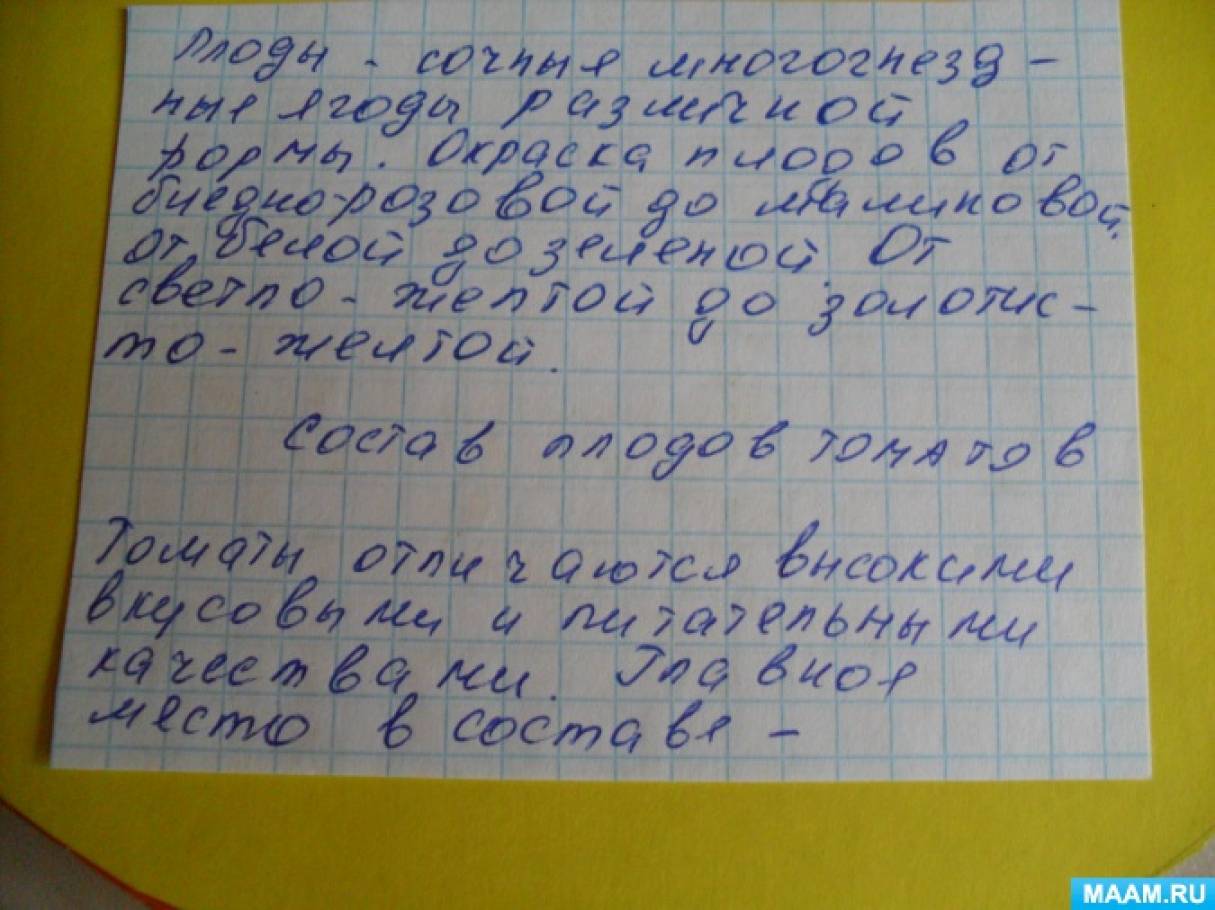 Плоды - сочные многогнезд -
ные ягоды различной
формы. Окраска плодов от
бледно-розовой до малиновой,
от белой до зеленой. От
светло - желтой до золотис -
то - желтой.
Состав плодов томатов
Томаты отличаются высокими
вкусовыми и питательными
качествами. Главное
место в составе -
MAAM.RU